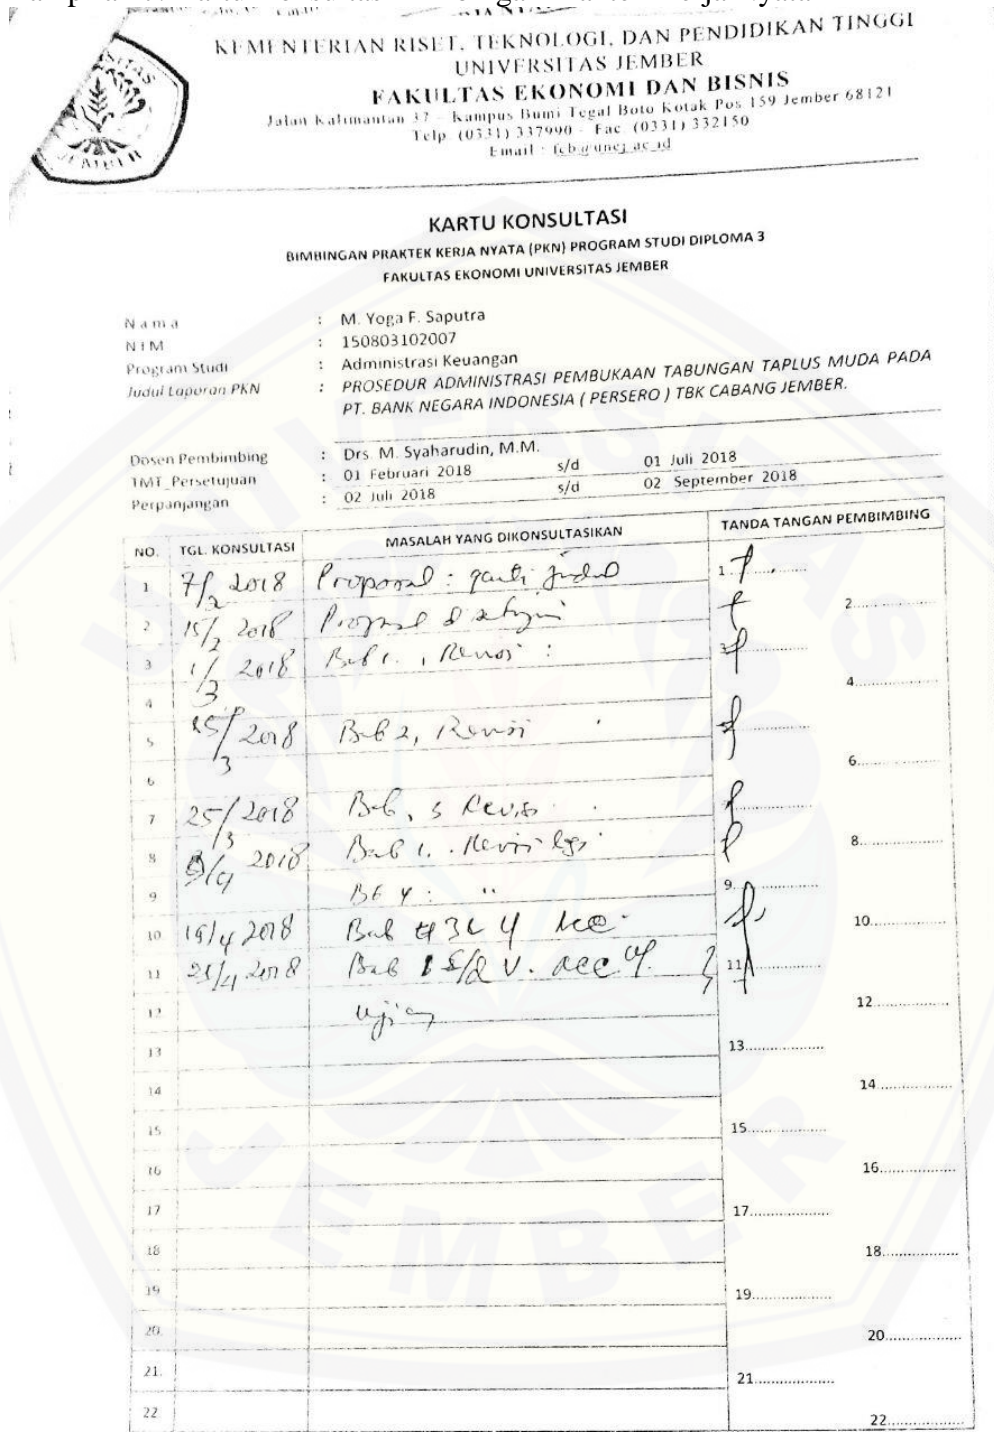 KEMENTERIAN RISET, TEKNOLOGI, DAN PENDIDIKAN TINGGI
UNIVERSITAS JEMBER
FAKULTAS EKONOMI DAN BISNIS
Jalan Kalimantan 37 - Kampus Bumi Tegal Boto Kotak Pos 159 Jember 68121
Telp. (0331) 337990 - Fac. (0331) 332150
Email : feb@unej.ac.id
JEMBER
KARTU KONSULTASI
BIMBINGAN PRAKTEK KERJA NYATA (PKN) PROGRAM STUDI DIPLOMA 3
FAKULTAS EKONOMI UNIVERSITAS JEMBER
N a m a : M. Yoga F. Saputra
N I M : 150803102007
Program Studi : Administrasi Keuangan
Judul Laporan PKN : PROSEDUR ADMINISTRASI PEMBUKAAN TABUNGAN TAPLUS MUDA PADA
PT. BANK NEGARA INDONESIA ( PERSERO ) TBK CABANG JEMBER.
Dosen Pembimbing : Drs. M. Syaharudin, M.M.
TMT_Persetujuan : 01 Februari 2018 s/d 01 Juli 2018
Perpanjangan : 02 Juli 2018 s/d 02 September 2018
NO. TGL. KONSULTASI MASALAH YANG DIKONSULTASIKAN TANDA TANGAN PEMBIMBING
1 7/2 2018 Proposal : ganti judul 1.........
2 15/2 2018 Proposal disetujui 2.........
3 1/3 2018 Bab 1., Revisi : 3.........
4 4.........
5 15/3 2018 Bab 2, Revisi
6 6.........
7 25/3 2018 Bab, 3 Revisi
8 2018 Bab 1. Revisi lagi 8.........
9 Bb 4 : " 9.........
10 19/4 2018 Bab 3 & 4 acc 10.........
11 2018 Bab 1 s/d V. acc 11.........
12 ujian 12.........
13 13.........
14 14.........
15 15.........
16 16.........
17 17.........
18 18.........
19 19.........
20. 20.........
21. 21.........
22 22.........